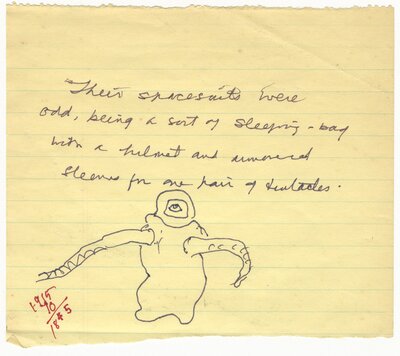 Their spacesuits were
odd, being a sort of sleeping-bag
with a helmet and armored
sleeves for one pair of tentacles.
1915
10
1845